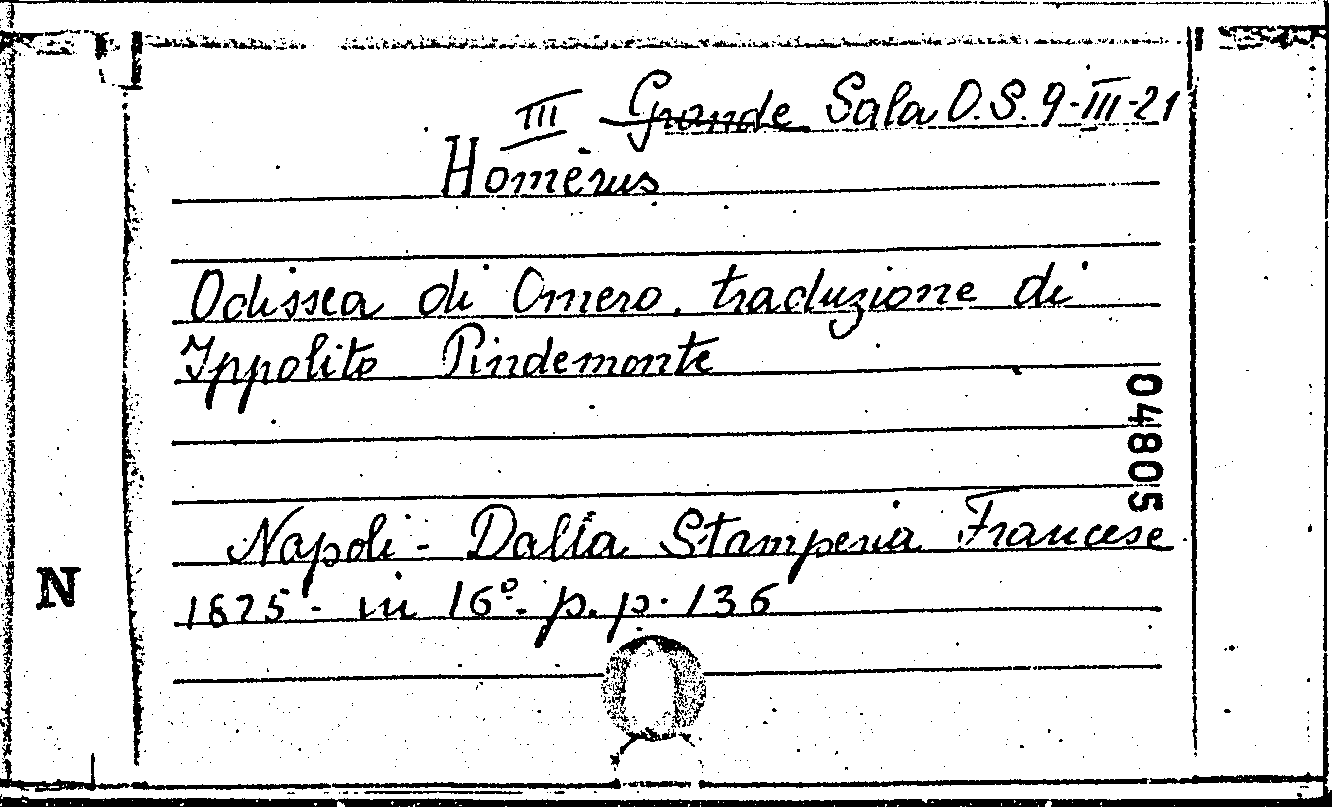 III Grande Sala O.S. 9-III-21
Homerus
Odissea di Omero. traduzione di
Ippolito Pindemonte
04805
Napoli - Dalla Stamperia Francese
N
1825 - in 16º. p.p. 136